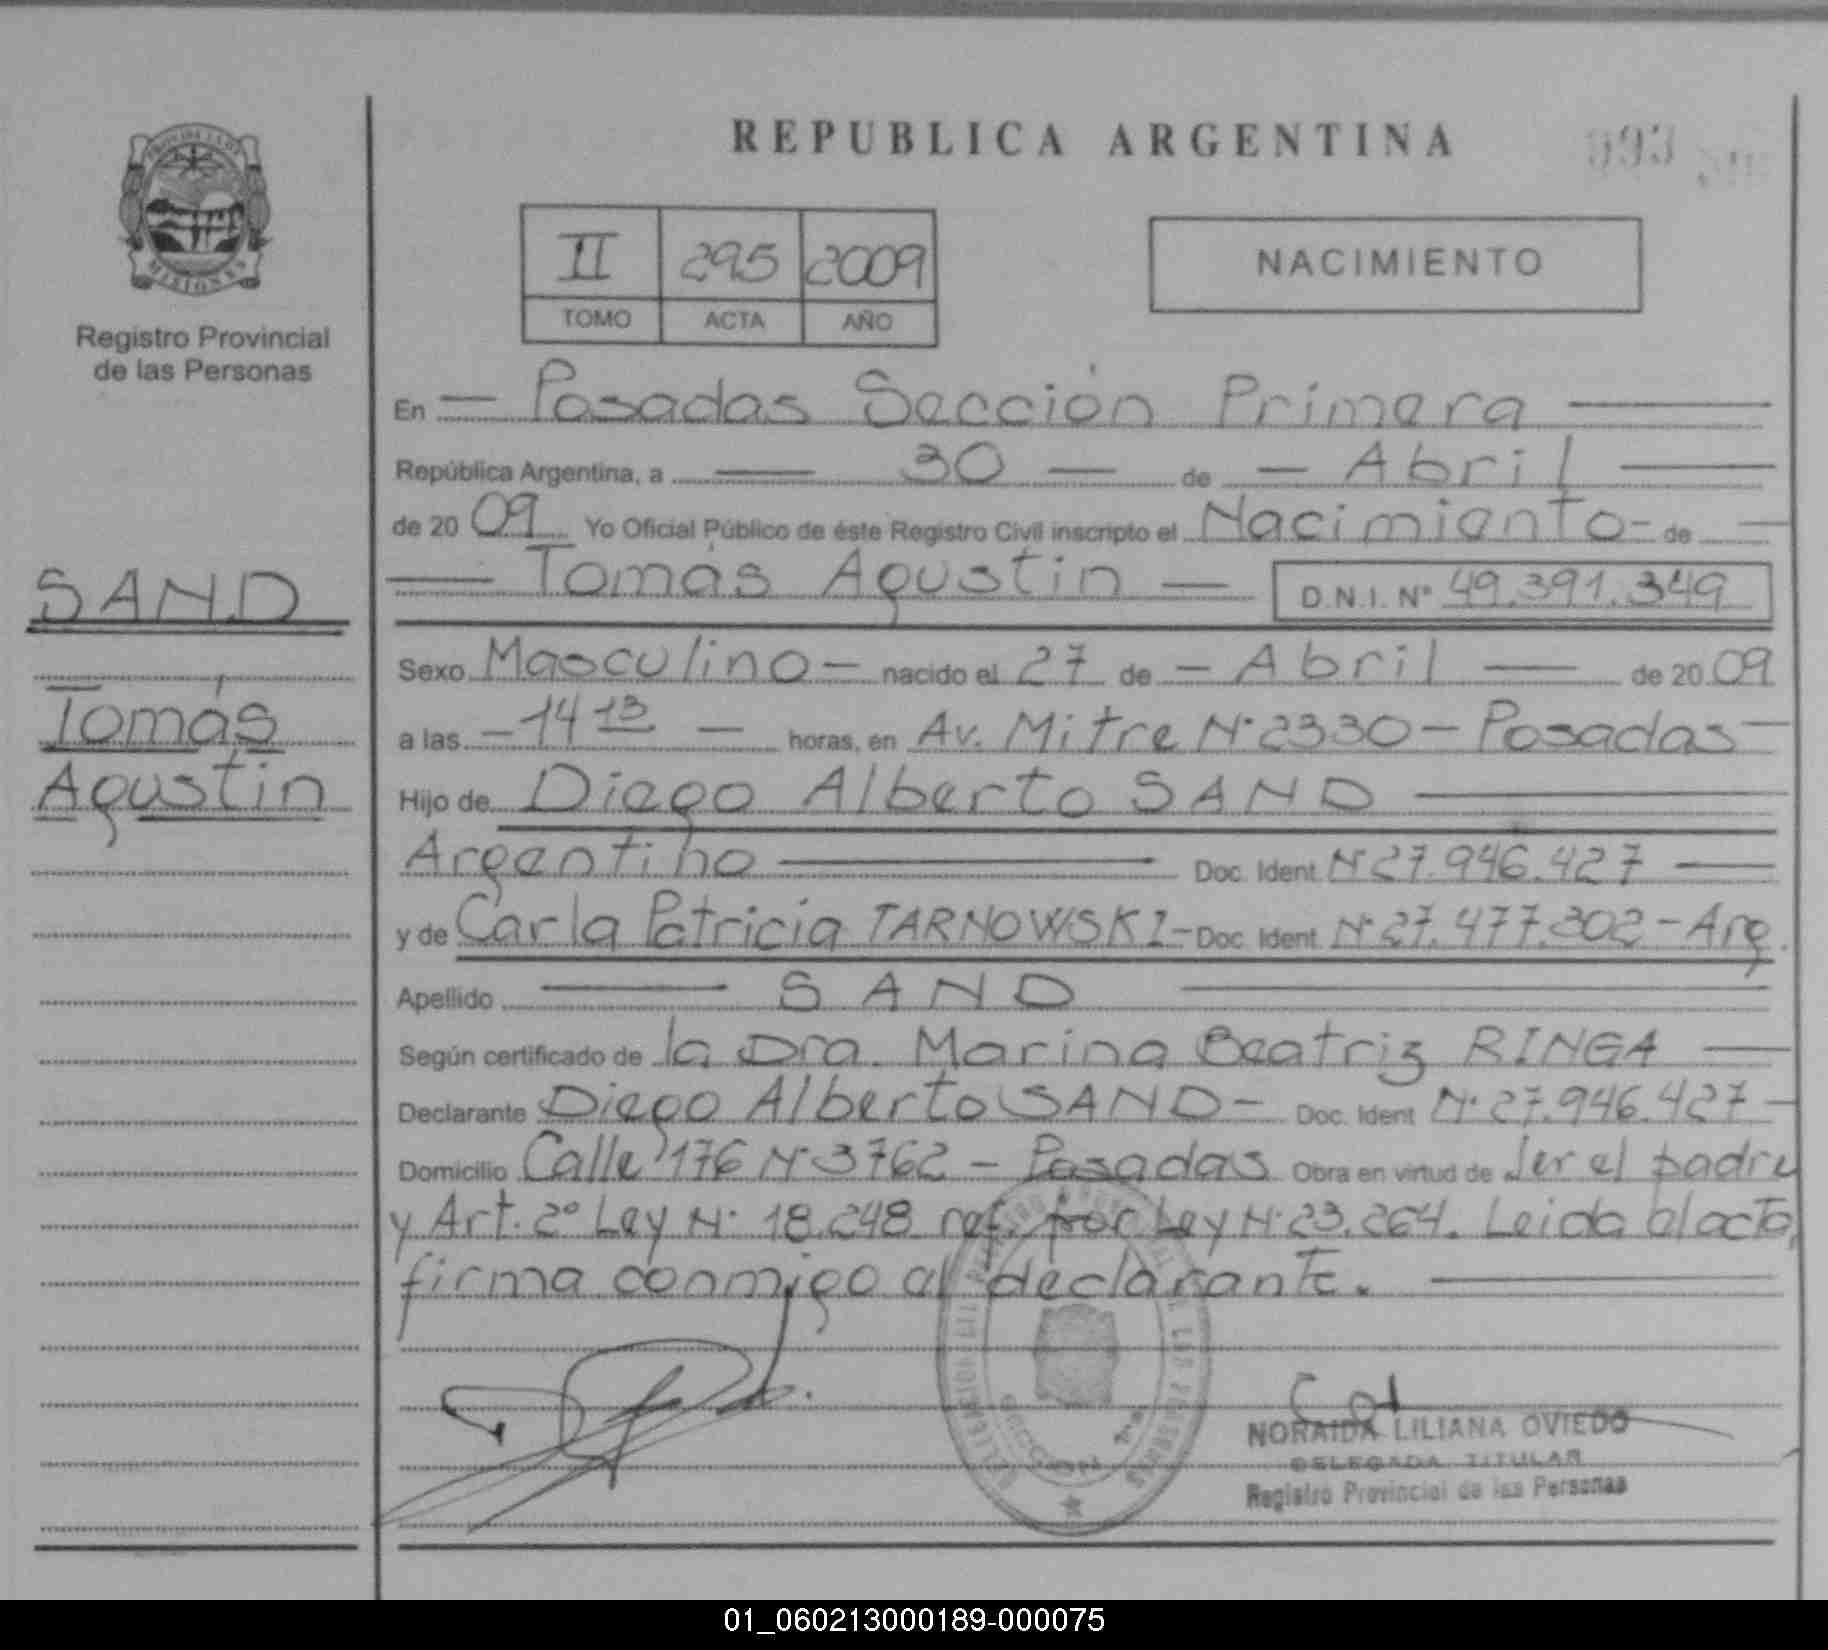 PROVINCIA DE
MISIONES
Registro Provincial
de las Personas
REPUBLICA ARGENTINA
993
II 295 2009
TOMO ACTA AÑO
NACIMIENTO
En — Posadas Sección Primera —
República Argentina, a — 30 — de — Abril —
de 20 09 Yo Oficial Público de éste Registro Civil inscripto el Nacimiento - de —
— Tomás Agustin — D.N.I. Nº 49.391.349
SAND
Tomás
Agustin
Sexo Masculino — nacido el 27 de — Abril — de 20 09
a las — 14 13 — horas, en Av. Mitre Nº 2330 — Posadas —
Hijo de Diego Alberto SAND —
Argentino — Doc. Ident Nº 27.946.427 —
y de Carla Patricia TARNOWSKI - Doc. Ident Nº 27.477.302 - Arg.
Apellido — SAND —
Según certificado de la Dra. Marina Beatriz RINGA —
Declarante Diego Alberto SAND - Doc. Ident Nº 27.946.427 -
Domicilio Calle 176 Nº 3762 - Posadas Obra en virtud de ser el padre
y Art. 2º Ley Nº 18.248 ref. por Ley Nº 23.264. Leida el acta,
firma conmigo el declarante. —
NORAIDA LILIANA OVIEDO
DELEGADA TITULAR
Registro Provincial de las Personas
01_060213000189-000075